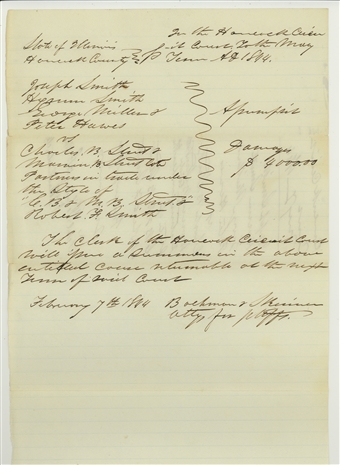 In the Hancock Cir
State of Illinois } cuit Court, To the May
Hancock County } Term AD 1844.
Joseph Smith
Hyrum Smith
George Miller &
Peter Hawes
Assumpsit
vs
Charles. B. Street &
Damages
Marvin B. Street
$ 4000.00
Partners in trade under
the style of
"C. B. & M. B. Street" &
Robert F. Smith
The Clerk of the Hancock Circuit Court
will issue a summons in the above
entitled cause returnable at the next
Term of said Court
February 7th 1844
Atty, for plffs.